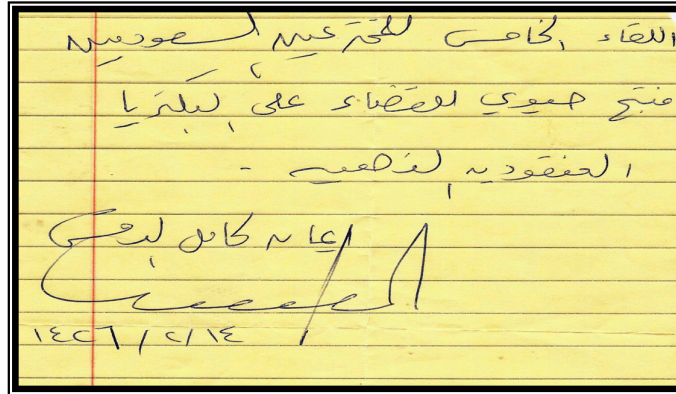 اللقاء الخامس للمخترعين السعوديين
منتج حيوي للقضاء على البكتريا
العنقوديه الذهبيه -
إيمان كامل
١٤٢٦/٢/١٤